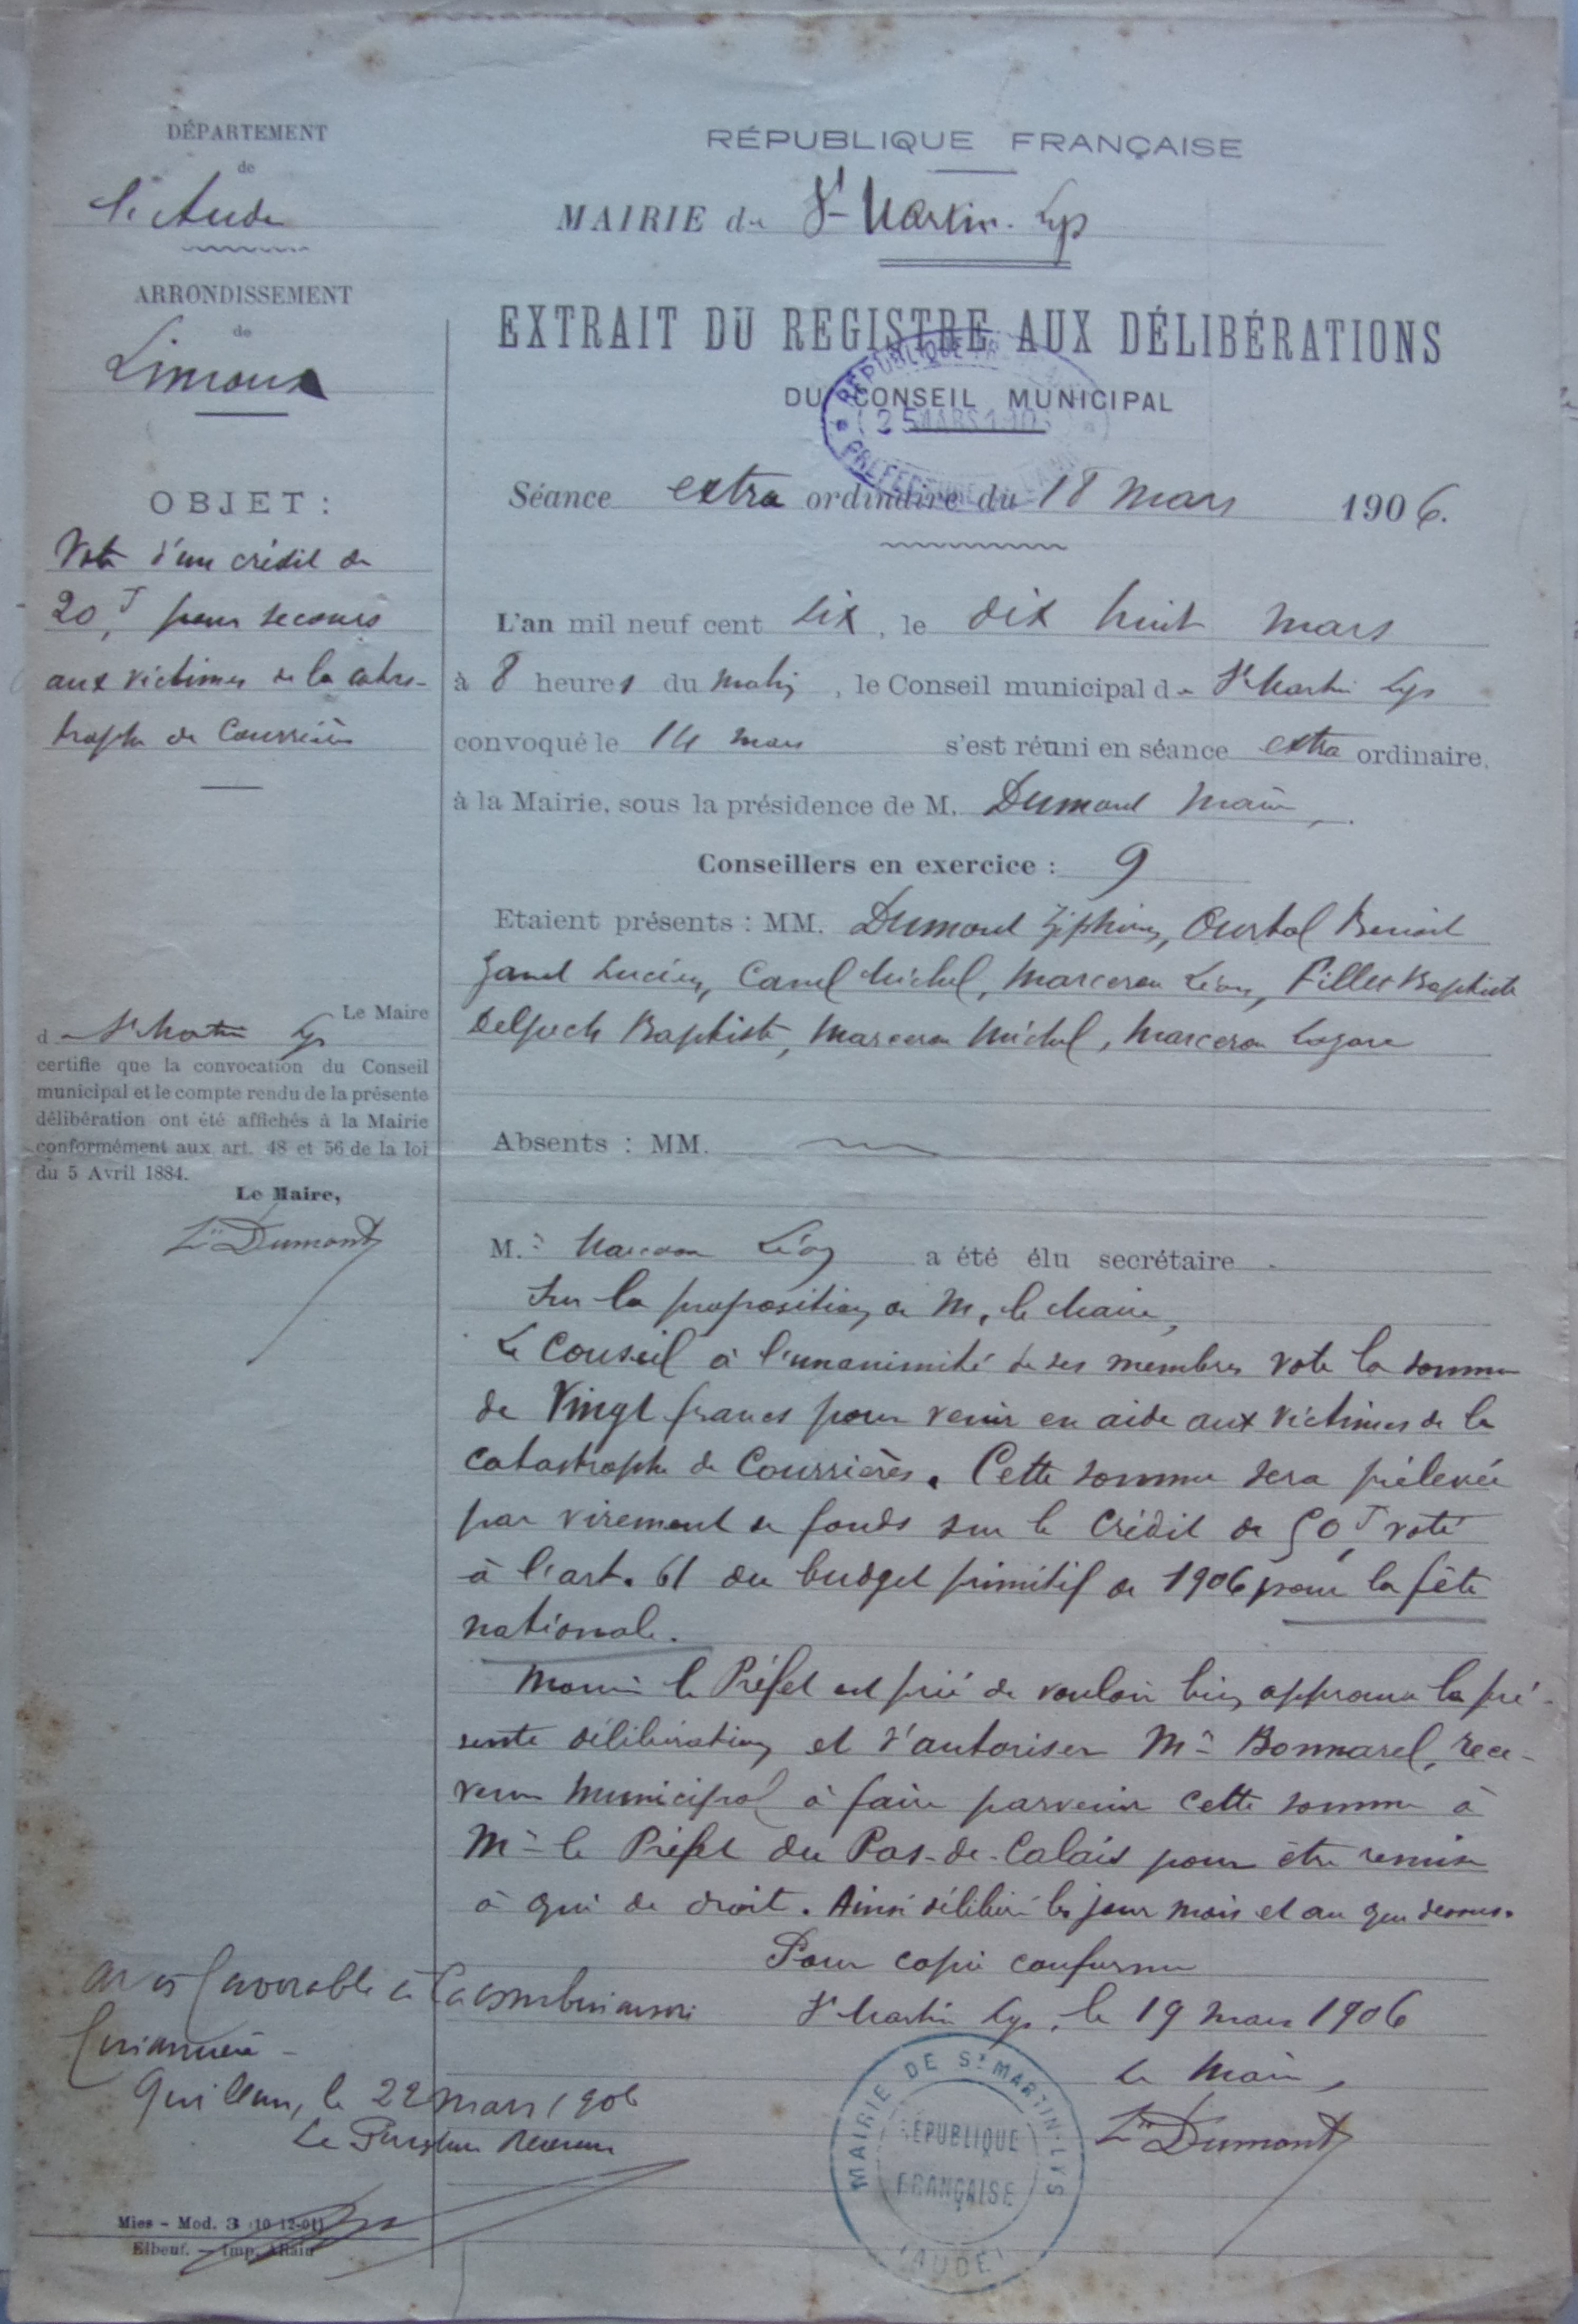 DÉPARTEMENT
de
l'Aude
ARRONDISSEMENT
de
Limoux
OBJET :
Vote d'un crédit de
20 f, pour secours
aux victimes de la catas-
trophe de Courrières
Le Maire
de St Martin Lys
certifie que la convocation du Conseil
municipal et le compte rendu de la présente
délibération ont été affichés à la Mairie
conformément aux art. 48 et 56 de la loi
du 5 Avril 1884.
Le Maire,
Zin Dumont
RÉPUBLIQUE FRANÇAISE
MAIRIE de St Martin. Lys
EXTRAIT DU REGISTRE AUX DÉLIBÉRATIONS
DU CONSEIL MUNICIPAL
Séance extra ordinaire du 18 mars 1906.
L'an mil neuf cent six, le dix huit mars
à 8 heures du matin, le Conseil municipal de St Martin Lys
convoqué le 14 mars s'est réuni en séance extra ordinaire,
à la Mairie, sous la présidence de M. Dumont Maire,
Conseillers en exercice : 9
Etaient présents : MM. Dumont Zéphirin, Ourtal Benoit
Lucien, Canel Michel, Marceron Léon, Pillet Baptiste
Delpech Baptiste, Marceron Michel, Marceron Lazare
Absents : MM.
M. r Marceron Léon a été élu secrétaire.
Sur la proposition de M. le Maire,
Le Conseil à l'unanimité de ses membres vote la somme
de Vingt francs pour venir en aide aux victimes de la
catastrophe de Courrières. Cette somme sera prélevée
par virement de fonds sur le crédit de 50 f, voté
à l'art. 61 du budget primitif de 1906 pour la fête
nationale.
le Préfet est prié de vouloir bien approuver la pré-
sente délibération et d'autoriser Mr Bonnarel, rece-
veur Municipal à faire parvenir cette somme à
Mr le Préfet du Pas-de-Calais pour être remise
à qui de droit. Ainsi délibéré les jour mois et an que dessus.
Pour copie conforme
St Martin Lys, le 19 mars 1906
Le Maire,
Zin Dumont
MAIRIE DE St MARTIN-LYS
RÉPUBLIQUE
FRANÇAISE
(AUDE)
Avis favorable à la combinaison
financière -
Quillan, le 22 mars 1906
Le Percepteur Receveur
Mies - Mod. 3 (10-12-01)
Elbeuf. — Imp. Allain